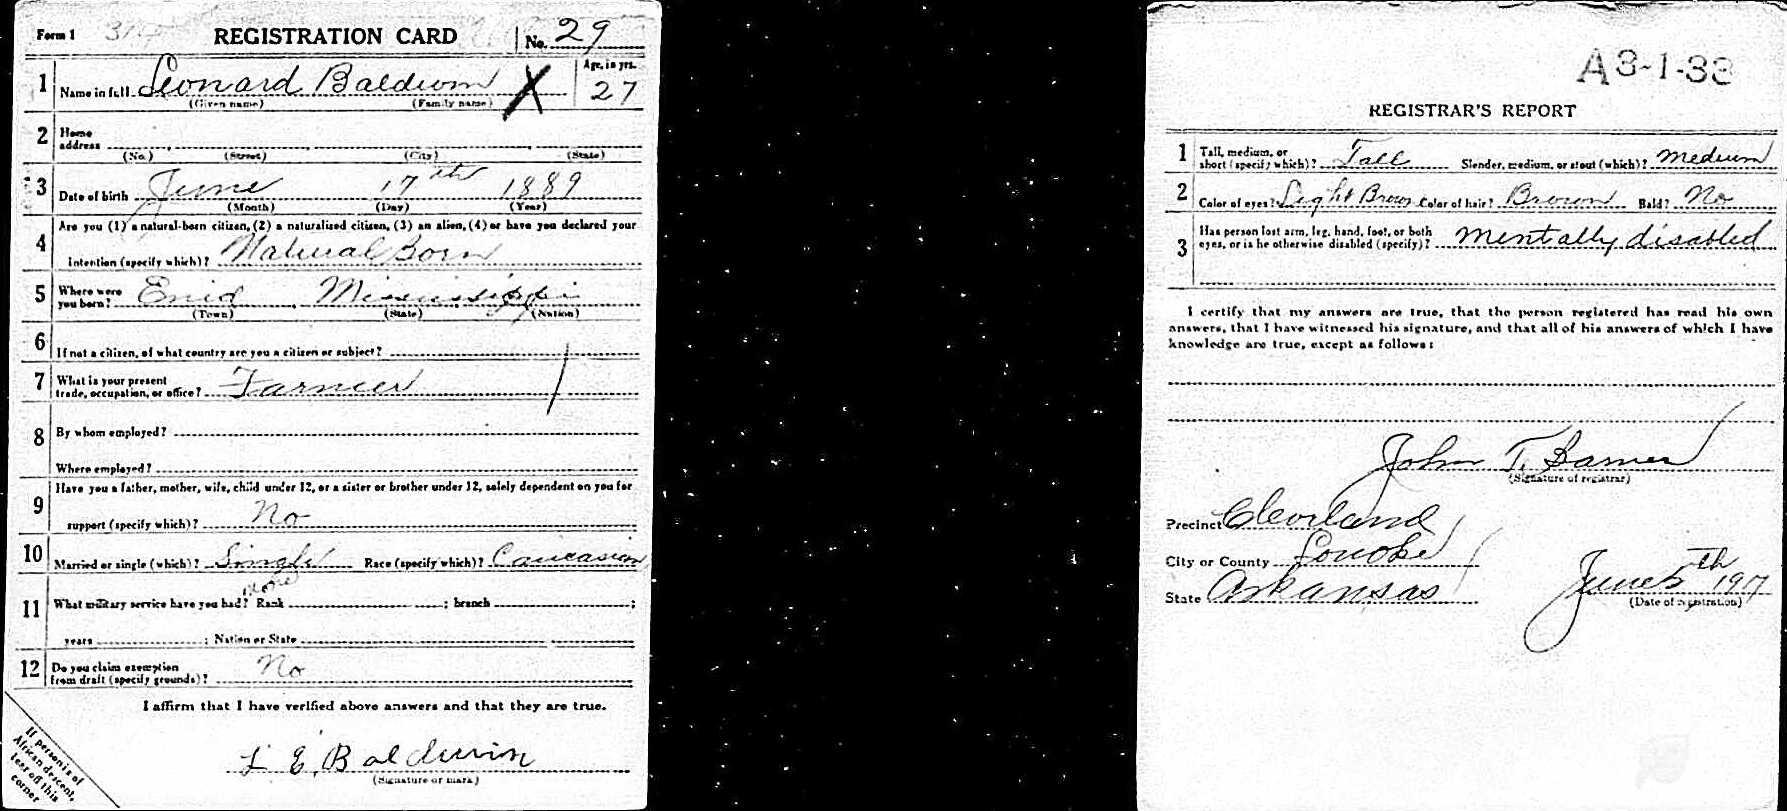 Form 1 REGISTRATION CARD No. 29
1 Name in full Leonard Baldwin X Age, in yrs. 27
(Given name) (Family name)
2 Home address
(No.) (Street) (City) (State)
3 Date of birth June 17th 1889
(Month) (Day) (Year)
4 Are you (1) a natural-born citizen, (2) a naturalized citizen, (3) an alien, (4) or have you declared your
intention (specify which)? Natural Born
5 Where were you born? Enid Mississippi
(Town) (State) (Nation)
6 If not a citizen, of what country are you a citizen or subject?
7 What is your present trade, occupation, or office? Farmer
8 By whom employed?
Where employed?
9 Have you a father, mother, wife, child under 12, or a sister or brother under 12, solely dependent on you for
support (specify which)? No
10 Married or single (which)? Single Race (specify which)? Caucasian
11 What military service have you had? Rank None ; branch ;
years ; Nation or State
12 Do you claim exemption from draft (specify grounds)? No
I affirm that I have verified above answers and that they are true.
L E. Baldwin
(Signature or mark)
If person is of
African descent,
tear off this
corner
A 3-1-33
REGISTRAR'S REPORT
1 Tall, medium, or short (specify which)? Tall Slender, medium, or stout (which)? Medium
2 Color of eyes? Light Brown Color of hair? Brown Bald? No
3 Has person lost arm, leg, hand, foot, or both eyes, or is he otherwise disabled (specify)? Mentally disabled
I certify that my answers are true, that the person registered has read his own
answers, that I have witnessed his signature, and that all of his answers of which I have
knowledge are true, except as follows:
John T. Barnes
(Signature of registrar)
Precinct Cleveland
City or County Lonoke
State Arkansas
June 5th 1917
(Date of registration)